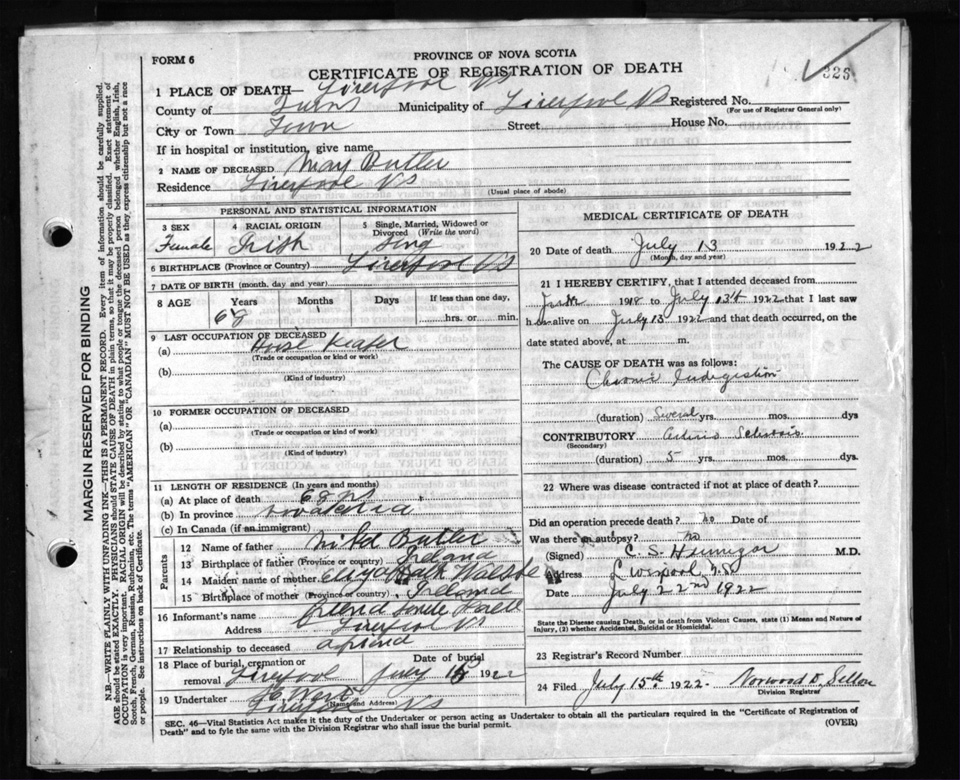 FORM 6
PROVINCE OF NOVA SCOTIA
CERTIFICATE OF REGISTRATION OF DEATH
326
1 PLACE OF DEATH— Liverpool NS
County of Municipality of Liverpool NS Registered No.
(For use of Registrar General only)
City or Town Town Street House No.
If in hospital or institution, give name
2 NAME OF DECEASED May Butler
Residence Liverpool NS (Usual place of abode)
PERSONAL AND STATISTICAL INFORMATION
3 SEX 4 RACIAL ORIGIN 5 Single, Married, Widowed or Divorced (Write the word)
Female Irish Sing
6 BIRTHPLACE (Province or Country) Liverpool NS
7 DATE OF BIRTH (month, day and year)
8 AGE Years Months Days If less than one day,
68 hrs. or min.
9 LAST OCCUPATION OF DECEASED
(a) House Keaper
(Trade or occupation or kind or work)
(b)
(Kind of industry)
10 FORMER OCCUPATION OF DECEASED
(a)
(Trade or occupation or kind of work)
(b)
(Kind of industry)
11 LENGTH OF RESIDENCE (In years and months)
(a) At place of death 68
(b) In province
(c) In Canada (if an immigrant)
Parents
12 Name of father Butler
13 Birthplace of father (Province or country) Ireland
14 Maiden name of mother
15 Birthplace of mother (Province or country) Ireland
16 Informant's name
Address Liverpool NS
17 Relationship to deceased a friend
18 Place of burial, cremation or removal Liverpool Date of burial July 1922
19 Undertaker
(Name and Address)
Liverpool NS
MEDICAL CERTIFICATE OF DEATH
20 Date of death July 13 1922
(Month, day and year)
21 I HEREBY CERTIFY, that I attended deceased from
1918 to July 13th 1922 that I last saw
h alive on July 13 1922 and that death occurred, on the
date stated above, at m.
The CAUSE OF DEATH was as follows:
Chronic Indigestion
(duration) Several yrs. mos. dys
CONTRIBUTORY
(Secondary)
(duration) 5 yrs. mos. dys.
22 Where was disease contracted if not at place of death?
Did an operation precede death? no Date of
Was there an autopsy? no
(Signed) C. S. Hennigar M.D.
Address Liverpool N.S.
Date July 22nd 1922
State the Disease causing Death, or in death from Violent Causes, state (1) Means and Nature of
Injury, (2) whether Accidental, Suicidal or Homicidal.
23 Registrar's Record Number
24 Filed July 15th 1922 Norwood D.
Division Registrar
SEC. 46—Vital Statistics Act makes it the duty of the Undertaker or person acting as Undertaker to obtain all the particulars required in the "Certificate of Registration of
Death" and to fyle the same with the Division Registrar who shall issue the burial permit.
(OVER)
MARGIN RESERVED FOR BINDING
N.B.—WRITE PLAINLY WITH UNFADING INK—THIS IS A PERMANENT RECORD. Every item of information should be carefully supplied.
AGE should be stated EXACTLY. PHYSICIANS should STATE CAUSE OF DEATH in plain terms, so that it may be properly classified. Exact statement of
OCCUPATION is very important. RACIAL ORIGIN will be described by stating to what people or tongue the deceased person belonged whether English, Irish,
Scotch, French, German, Russian, Ruthenian, etc. The terms "AMERICAN" or "CANADIAN" MUST NOT BE USED as they express citizenship but not a race
or people. See instructions on back of Certificate.